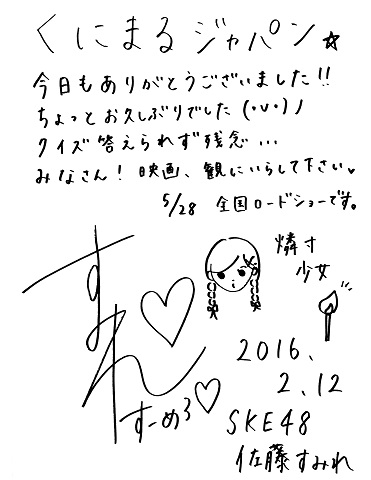 くにまるジャパン☆
今日もありがとうございました!!
ちょっとお久しぶりでした(・v・)ノ
クイズ答えられず残念...
みなさん!映画、観にいらして下さい♥
5/28 全国ロードショーです。
燐寸
少女
すみれ♡
すーめろ♡
2016.
2.12
SKE48
佐藤すみれ